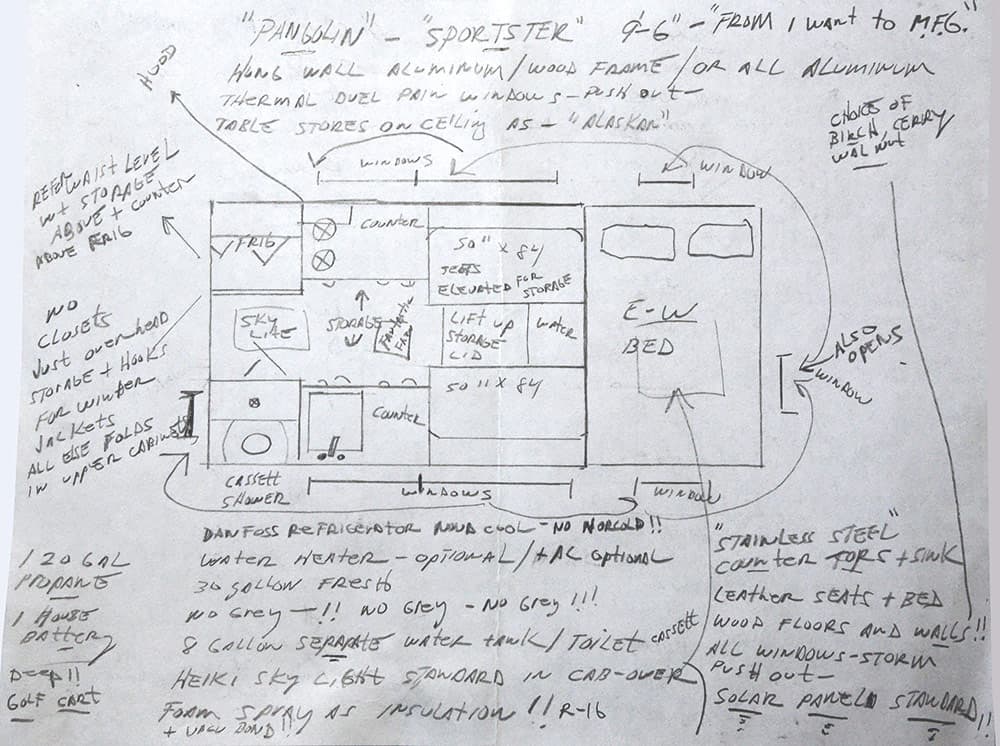 "PANGOLIN" - "SPORTSTER" 9'-6" - "FROM I WANT TO M.F.G."
HUNG WALL ALUMINUM/WOOD FRAME/OR ALL ALUMINUM
THERMAL DUEL PAIN WINDOWS - PUSH OUT -
TABLE STORES ON CEILING AS - "ALASKAN"
HOOD
CHOICE OF
BIRCH, CERRY
WALNUT
WINDOWS
WINDOW
REFER WAIST LEVEL
WT STORAGE
ABOVE + COUNTER
ABOVE FRIG
FRIG
COUNTER
50" X 84
SEATS
ELEVATED FOR
STORAGE
SKY
LITE
STORAGE
FANTASTIC
FAN
LIFT UP
STORAGE
LID
WATER
E-W
BED
ALSO
OPENS
WINDOW
NO
CLOSETS
JUST OVERHEAD
STORAGE + HOOKS
FOR WINTER
JACKETS
ALL ELSE FOLDS
IN UPPER CABINETS
COUNTER
50" X 84
CASSETT
SHOWER
WINDOWS
WINDOW
DANFOSS REFRIGERATOR NOVA COOL - NO NORCOLD!!
1 20 GAL
PROPANE
1 HOUSE
BATTERY
DEEP!!
GOLF CART
WATER HEATER - OPTIONAL/+AC OPTIONAL
30 GALLON FRESH
NO GREY -!! NO GREY - NO GREY!!!
8 GALLON SEPARATE WATER TANK/TOILET CASSETT
HEIKI SKY LIGHT STANDARD IN CAB-OVER
FOAM SPRAY AS INSULATION!! R-16
+ VACU BOND!!
"STAINLESS STEEL"
COUNTER TOPS + SINK
LEATHER SEATS + BED
WOOD FLOORS AND WALLS!!
ALL WINDOWS-STORM
PUSH OUT-
SOLAR PANELS STANDARD!!